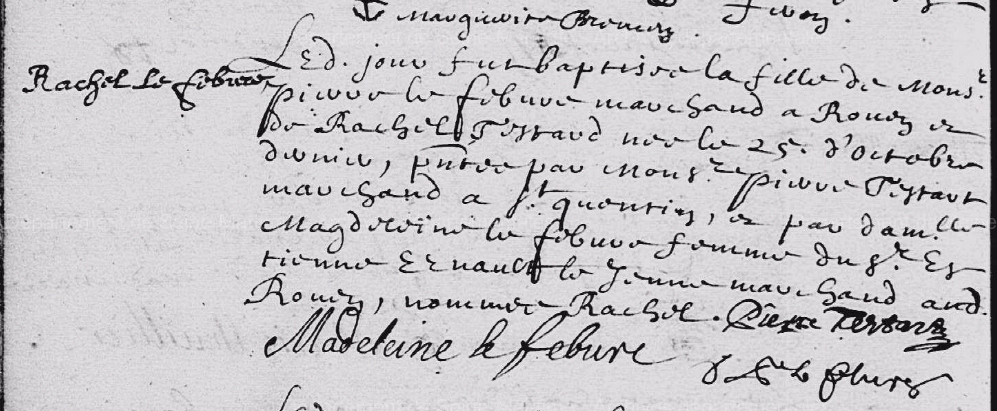 Marguerite
Rachel le febure
Led. jour fut baptisee la fille de Monsr.
pierre le febure marchand a Rouen et
de Rachel Testard nee le 25e d'Octobre
dernier, pntée par Monsre pierre Testart
marchand a st. quentin, et par damlle
Magdeleine le febure femme du sr. Es
tienne Ernault le Jeune marchand aud.
Rouen, nommee Rachel. Pierre Testart
Madeleine le febure